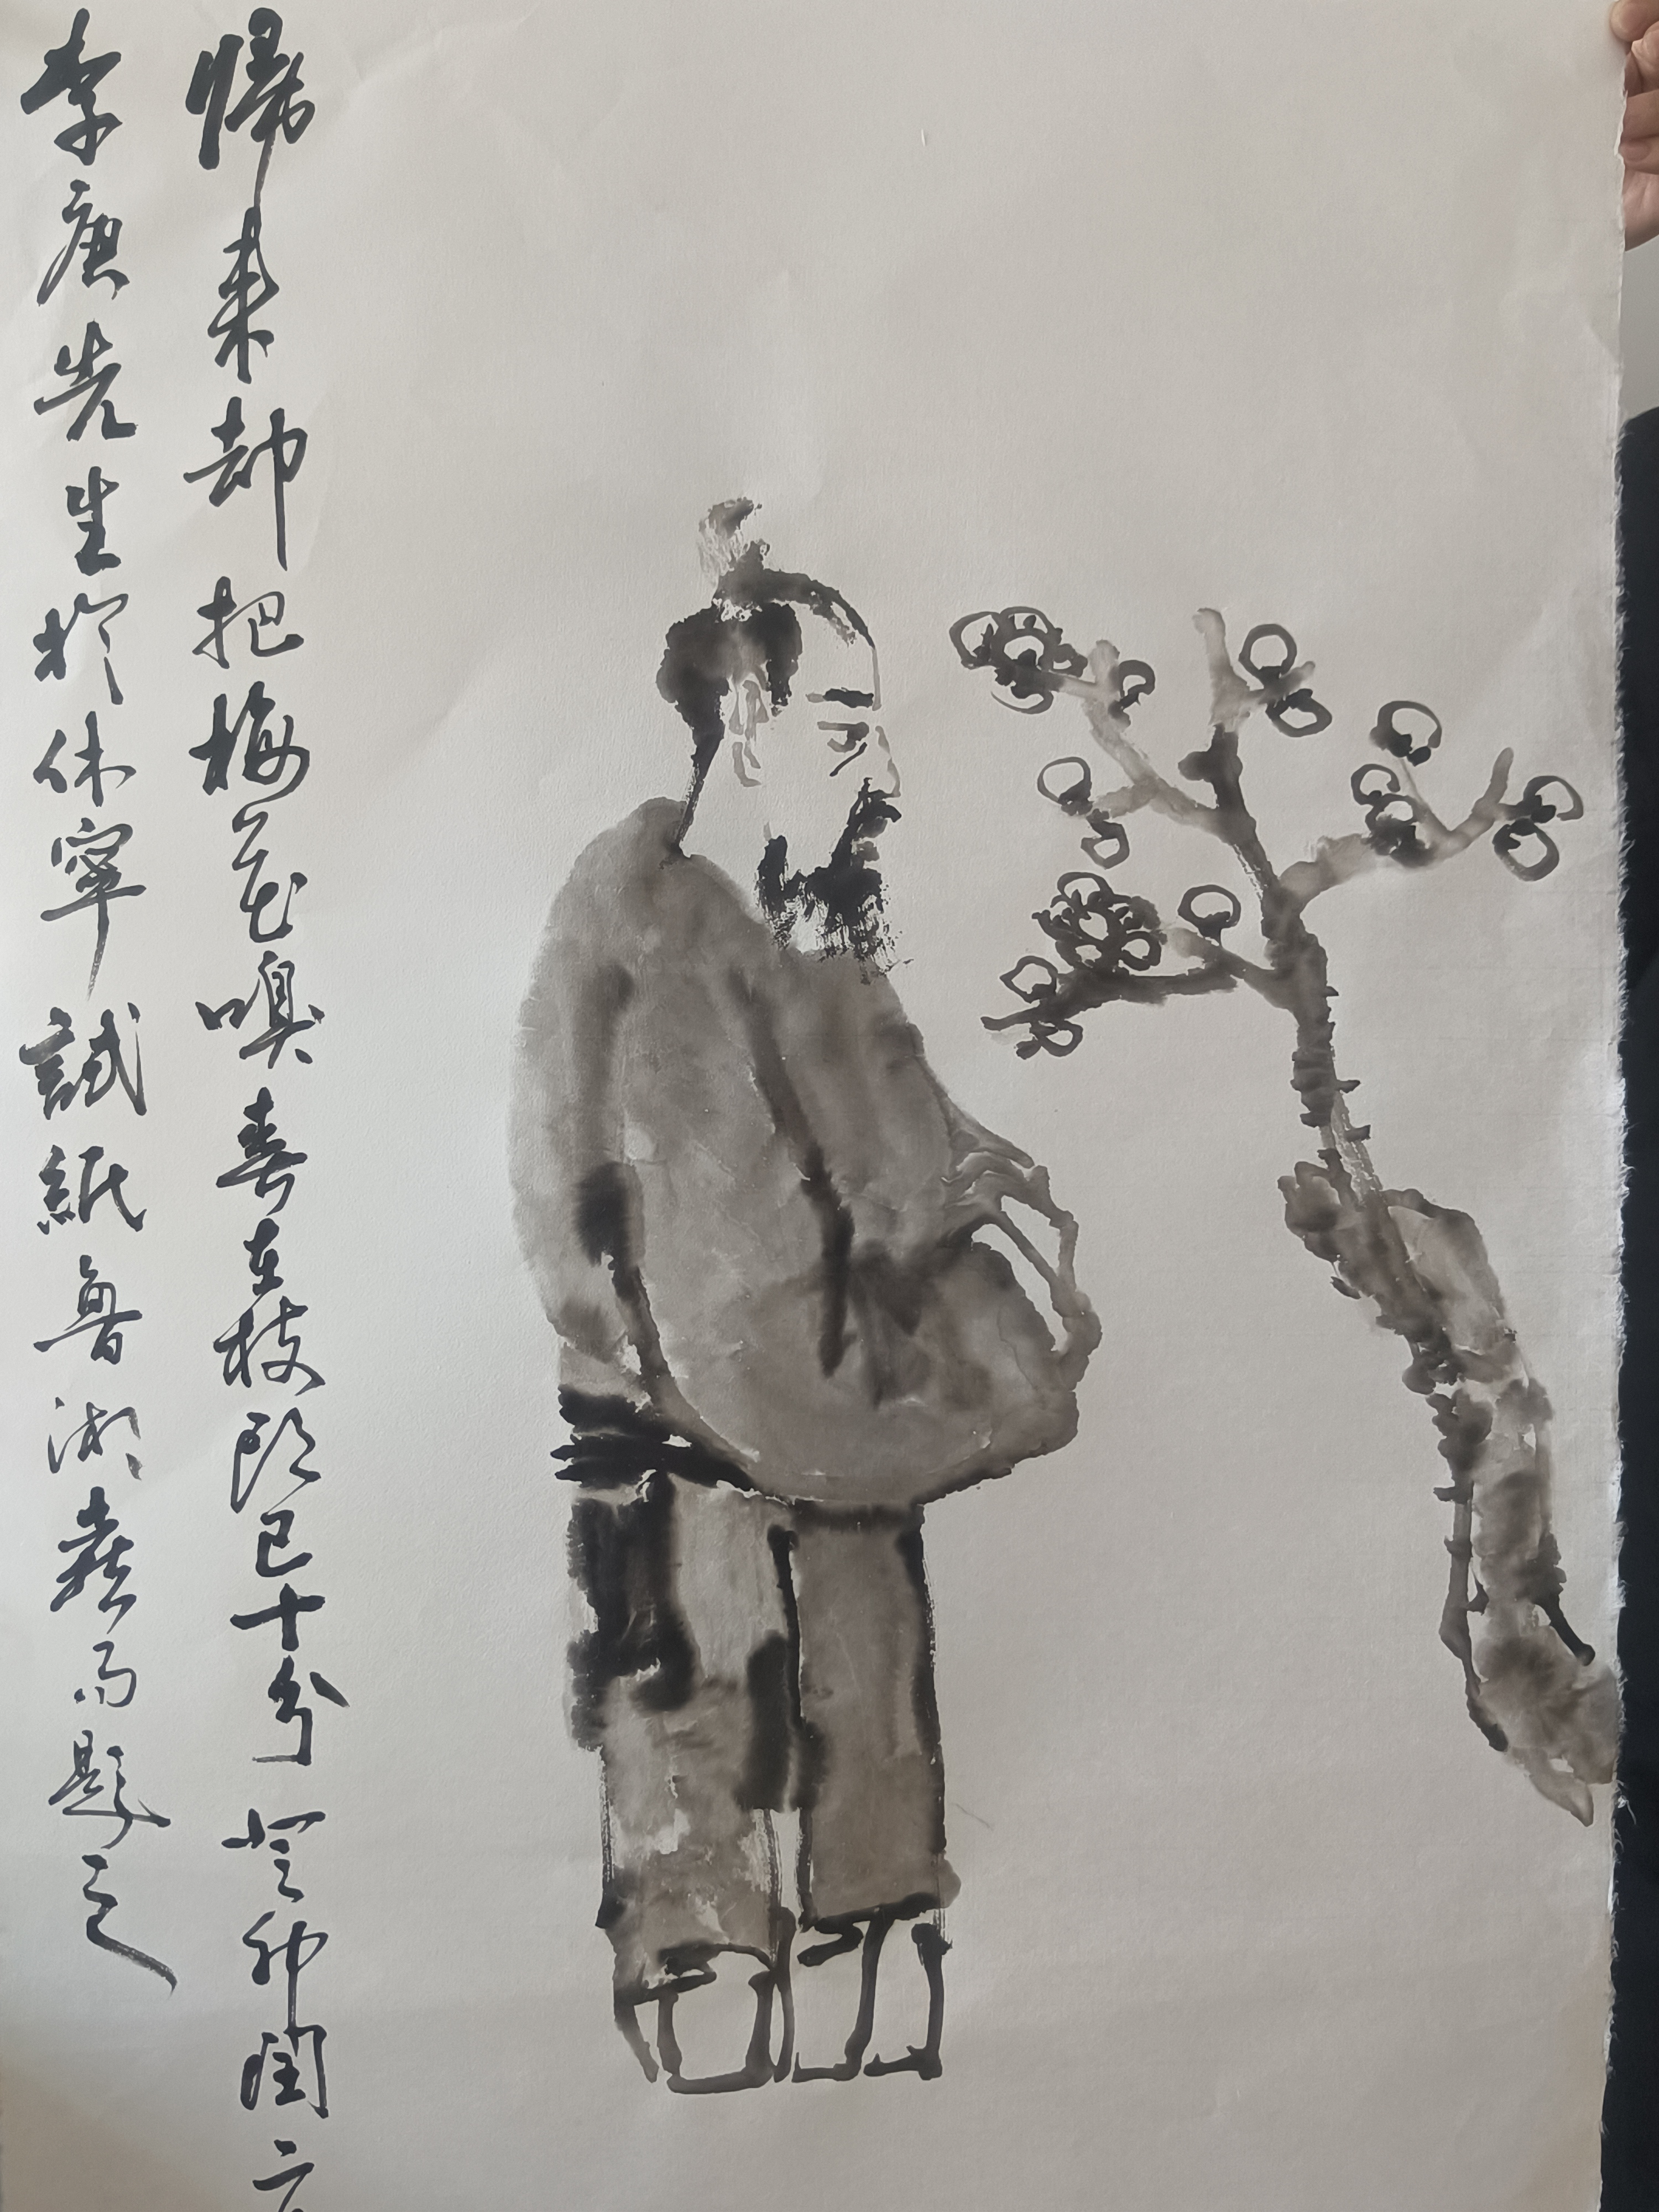 歸來却把梅花嗅春在枝頭已十分 癸卯閏二
李庚先生於休寧試紙魯湘燕爲題之